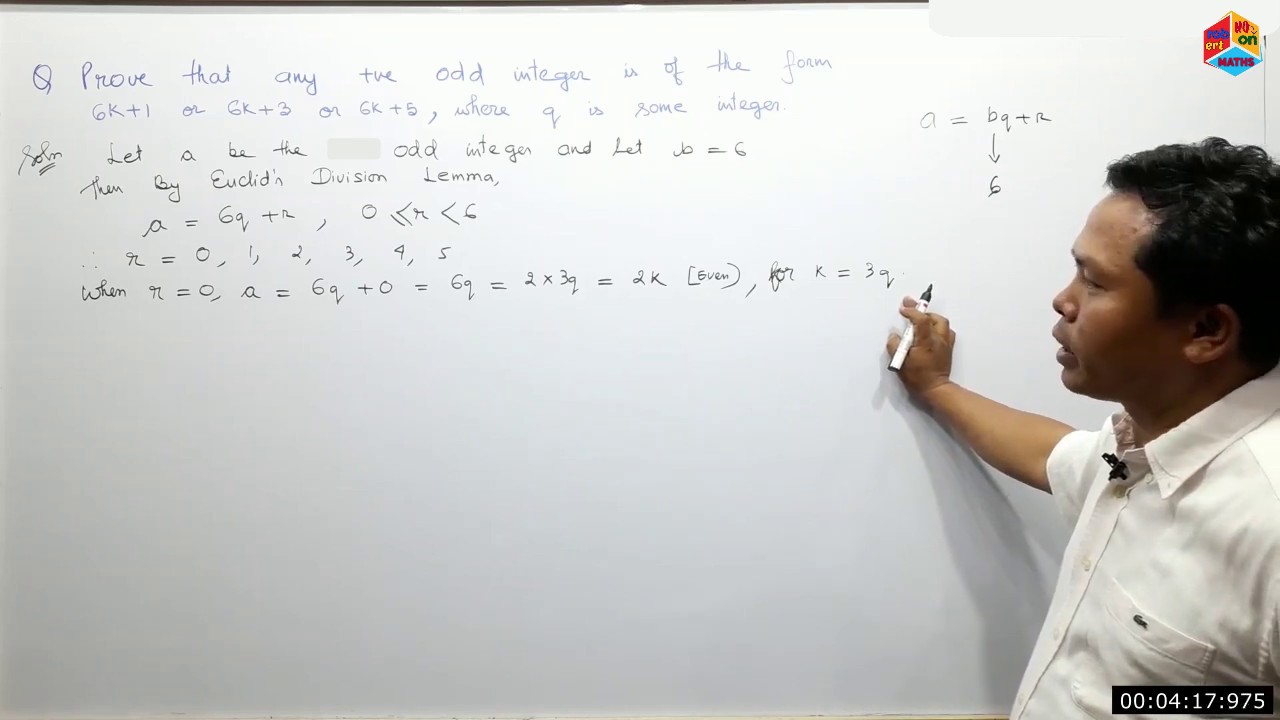 Q Prove that any +ve odd integer is of the form
6K+1 or 6K+3 or 6K+5, where q is some integer.
Soln Let a be the odd integer and Let b = 6
then By Euclid's Division Lemma,
a = 6q + r, 0 ≤ r < 6
∴ r = 0, 1, 2, 3, 4, 5
When r = 0, a = 6q + 0 = 6q = 2 × 3q = 2K [Even), for K = 3q.
a = bq + r
↓
6
rob
ert
NO
on
MATHS
00:04:17:975